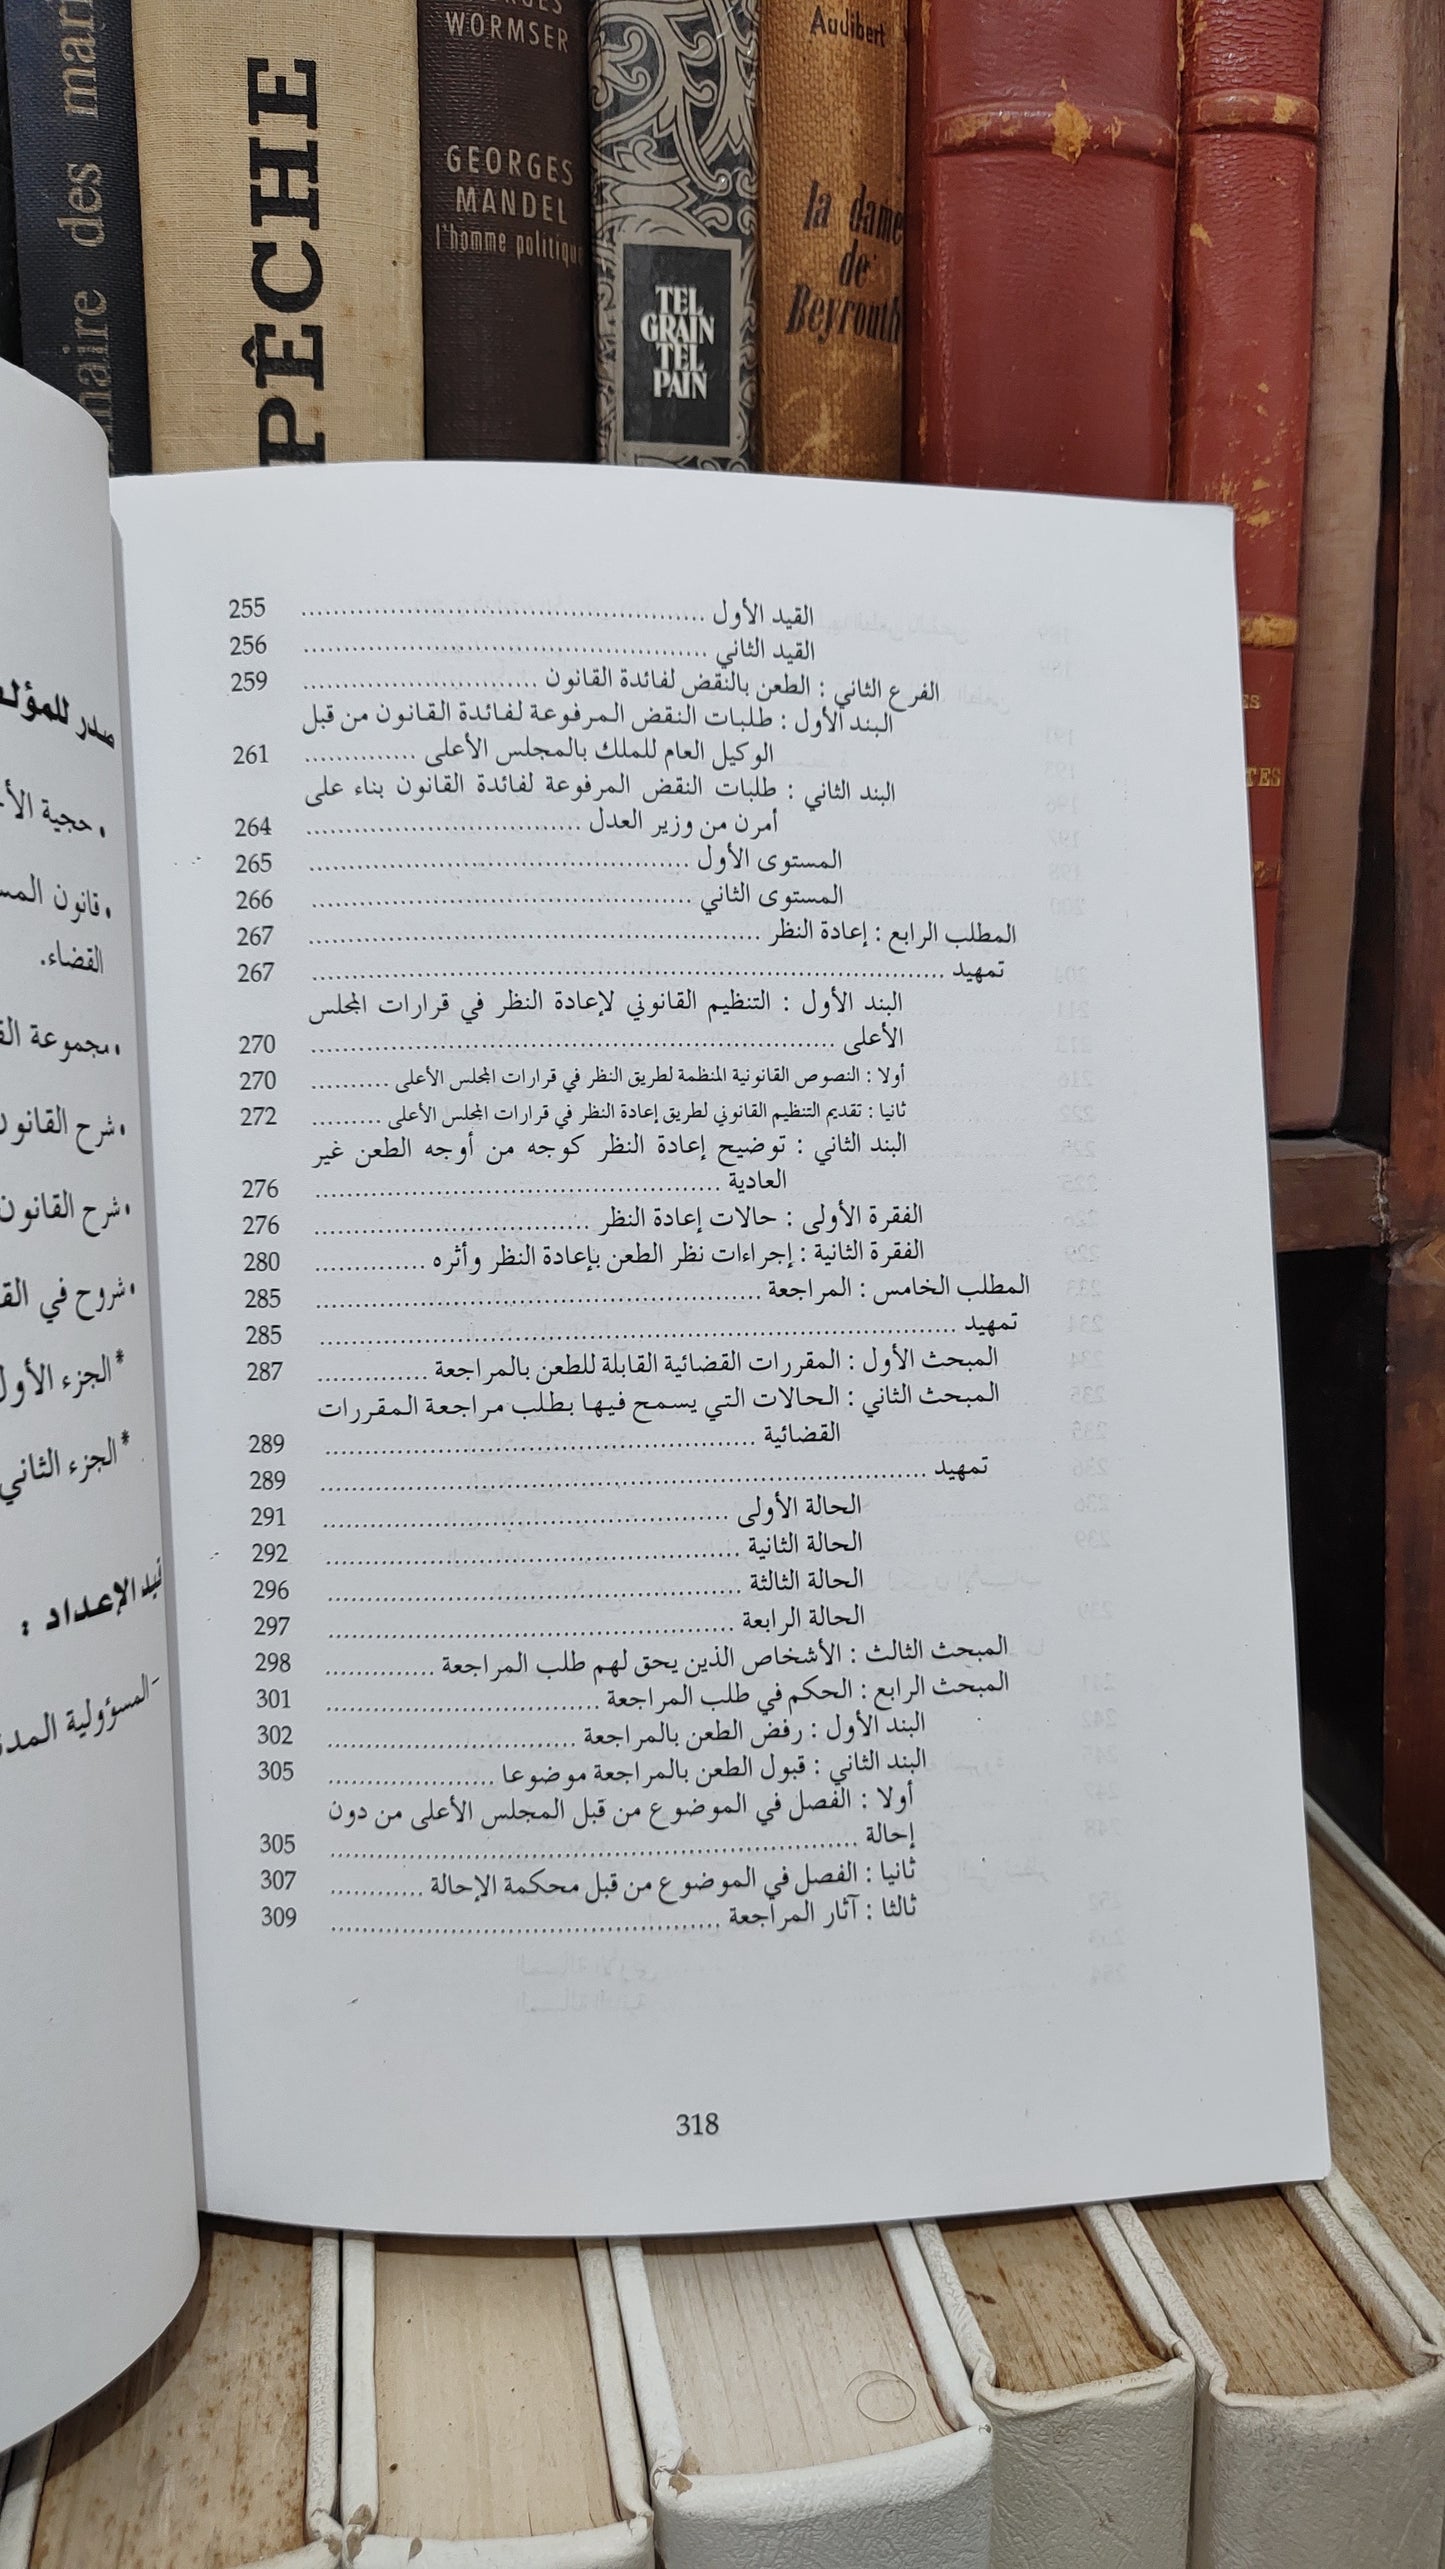 naire des mari
PÊCHE
GEORGES
WORMSER
GEORGES
MANDEL
l'homme politique
TEL
GRAIN
TEL
PAIN
Audibert
la dame
de
Beyrouth
القيد الأول ........ 255
القيد الثاني ........ 256
الفرع الثاني : الطعن بالنقض لفائدة القانون ........ 259
البند الأول : طلبات النقض المرفوعة لفائدة القانون من قبل
الوكيل العام للملك بالمجلس الأعلى ........ 261
البند الثاني : طلبات النقض المرفوعة لفائدة القانون بناء على
أمرن من وزير العدل ........ 264
المستوى الأول ........ 265
المستوى الثاني ........ 266
المطلب الرابع : إعادة النظر ........ 267
تمهيد ........ 267
البند الأول : التنظيم القانوني لإعادة النظر في قرارات المجلس
الأعلى ........ 270
أولا : النصوص القانونية المنظمة لطريق النظر في قرارات المجلس الأعلى ........ 270
ثانيا : تقديم التنظيم القانوني لطريق إعادة النظر في قرارات المجلس الأعلى ........ 272
البند الثاني : توضيح إعادة النظر كوجه من أوجه الطعن غير
العادية ........ 276
الفقرة الأولى : حالات إعادة النظر ........ 276
الفقرة الثانية : إجراءات نظر الطعن بإعادة النظر وأثره ........ 280
المطلب الخامس : المراجعة ........ 285
تمهيد ........ 285
المبحث الأول : المقررات القضائية القابلة للطعن بالمراجعة ........ 287
المبحث الثاني : الحالات التي يسمح فيها بطلب مراجعة المقررات
القضائية ........ 289
تمهيد ........ 289
الحالة الأولى ........ 291
الحالة الثانية ........ 292
الحالة الثالثة ........ 296
الحالة الرابعة ........ 297
المبحث الثالث : الأشخاص الذين يحق لهم طلب المراجعة ........ 298
المبحث الرابع : الحكم في طلب المراجعة ........ 301
البند الأول : رفض الطعن بالمراجعة ........ 302
البند الثاني : قبول الطعن بالمراجعة موضوعا ........ 305
أولا : الفصل في الموضوع من قبل المجلس الأعلى من دون
إحالة ........ 305
ثانيا : الفصل في الموضوع من قبل محكمة الإحالة ........ 307
ثالثا : آثار المراجعة ........ 309
318
صدر للمؤلف
• حجية الأ
• قانون المس
القضاء.
• مجموعة الق
• شرح القانون
• شرح القانون
• شروح في الق
*الجزء الأول
*الجزء الثاني
قيد الإعداد :
-المسؤولية المدن